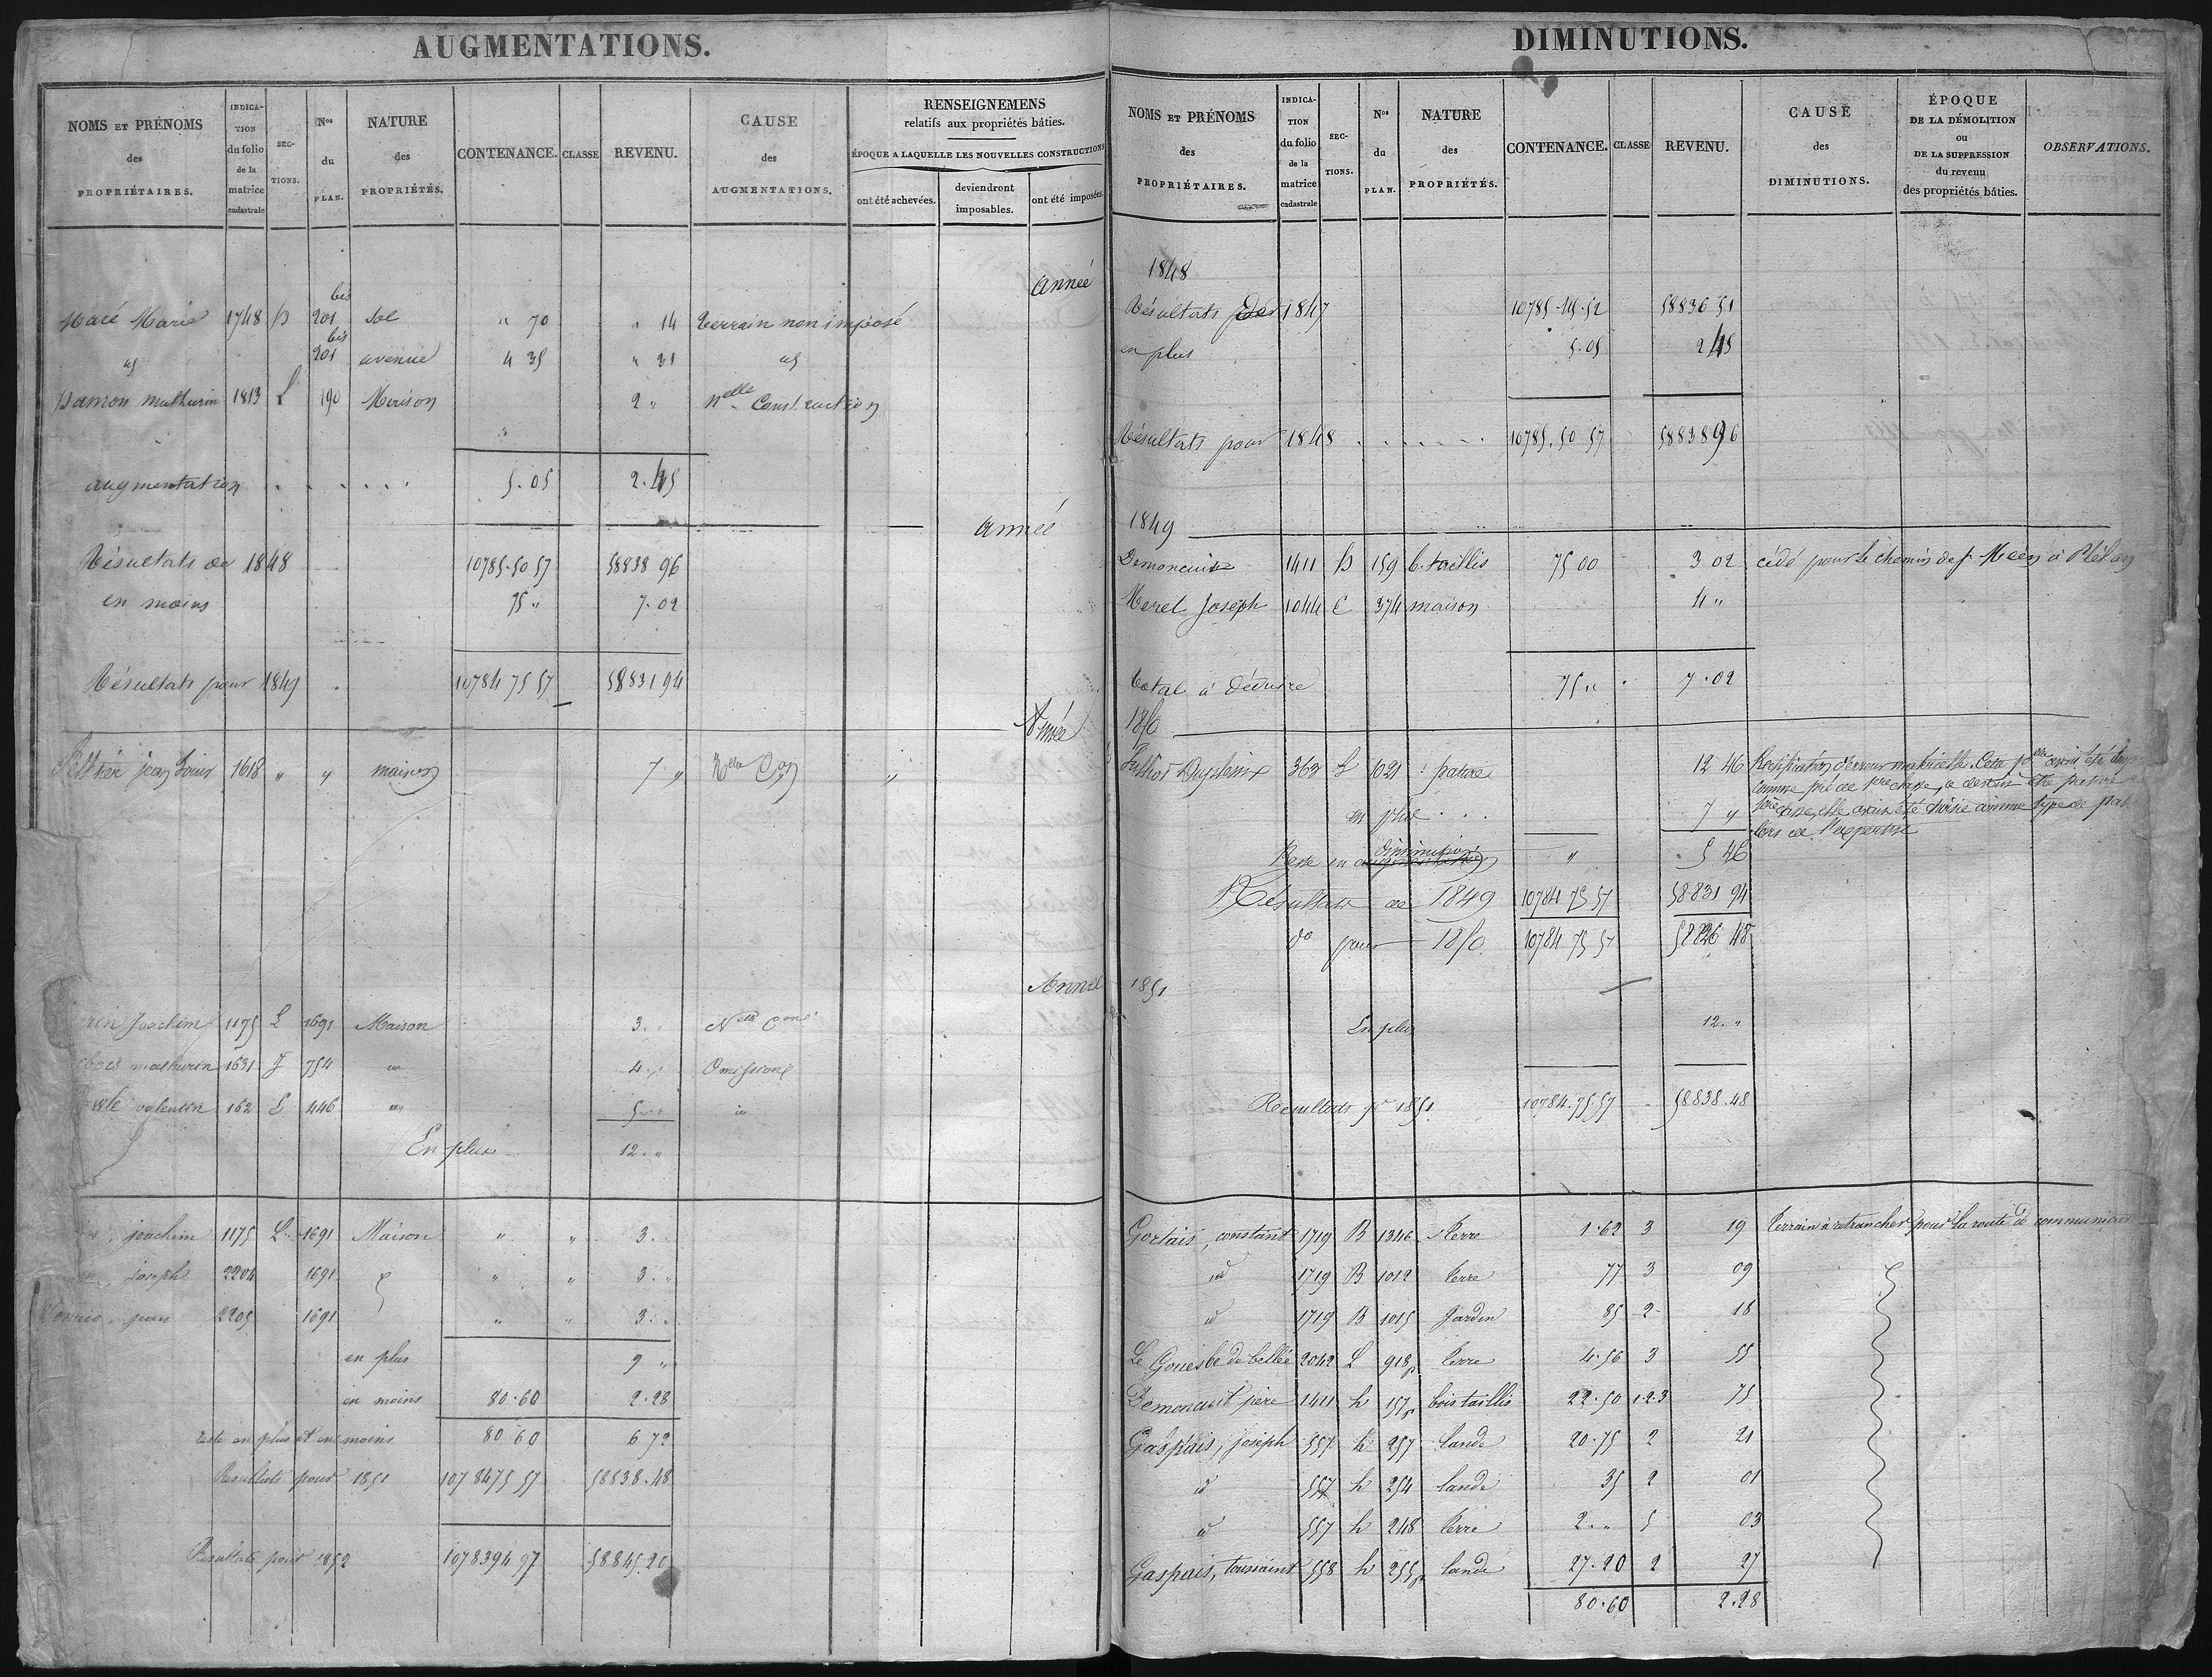 AUGMENTATIONS.
NOMS ET PRÉNOMS des PROPRIÉTAIRES.
INDICATION du folio de la matrice cadastrale
SECTIONS.
Nos du PLAN.
NATURE des PROPRIÉTÉS.
CONTENANCE.
CLASSE
REVENU.
CAUSE des AUGMENTATIONS.
RENSEIGNEMENS relatifs aux propriétés bâties.
ÉPOQUE A LAQUELLE LES NOUVELLES CONSTRUCTIONS
ont été achevées.
deviendront imposables.
ont été imposées.
Année
Macé Marie 1748 201 bis sol " 70 " 14 terrain non imposé
id 201 bis avenue 4 35 " 31 id
mathurin 1813 L 190 Maison 2 " nelle Construction
augmentation . . . . . 5.05 2.45
Année
Résultats de 1848 10785.50 57 58838 96
en moins 75 " 7.02
Résultats pour 1849 10784 75 57 58831 94
Année
jean Louis 1618 " " maison 7 " Nelle Con "
Année
Joachim 1175 L 1691 Maison 3. " Nelle Con
mathurin 1631 F 754 id 4. " Omission
valentin 162 L 446 id 5 id
En plus 12. "
joachim 1175 L. 1691 Maison " " 3. "
joseph 2204 1691 " " 3. "
jean 2205 1691 " " 3. "
en plus 9 "
en moins 80.60 2.28
reste en plus et en moins 80 60 6 72
Résultats pour 1851 10784 75 57 58838.48
Résultats pour 1852 10783 94 97 58845.20
DIMINUTIONS.
NOMS ET PRÉNOMS des PROPRIÉTAIRES.
INDICATION du folio de la matrice cadastrale
SECTIONS.
Nos du PLAN.
NATURE des PROPRIÉTÉS.
CONTENANCE.
CLASSE
REVENU.
CAUSE des DIMINUTIONS.
ÉPOQUE DE LA DÉMOLITION ou DE LA SUPPRESSION du revenu des propriétés bâties.
OBSERVATIONS.
1848
Résultats de 1847 10785.45.52 58836 51
en plus 5.05 2 45
Résultats pour 1848 . . . . . . 10785.50 57 58838 96
1849
Demoncuit 1411 159 b. taillis 75 00 3 02 cédé pour le chemin de St Meen à Plélan
Merel Joseph 1044 E 374 maison 4 "
total à déduire 75 " 7.02
1850
363 L 1021 pature 12 46 Rectification d'erreur matérielle. Cette plle avait été
comme pré de 1ere classe, a devenir être pature
1ere classe, elle avait été choisie comme type de
lors de l'expertise
en plus . . . 7 "
Reste en diminution " 5 46
Résultats de 1849 10784 75 57 58.831 94
do pour 1850 10784 75 57 58826 48
1851
En plus 12. "
Résultats pr 1851 10784.75.57 58.838.48
Gortais, constant 1719 B 1346 terre 1.62 3 19 Terrain à retrancher pour la route de
id 1719 B 1012 terre 77 3 09
id 1719 B 1015 Jardin 85 2 18
Le Gouesbe de bellée 2042 L 918p terre 4.56 3 55
Demoncuit père 1411 h 157p bois taillis 22.50 1.2.3 75
Gaspais, joseph 557 h 257 lande 20.75 2 21
id 557 h 254 lande 35 2 01
id 557 h 248 terre 2. " 5 03
Gaspais, toussaint 558 h 255p lande 27.20 2 27
80.60 2.28